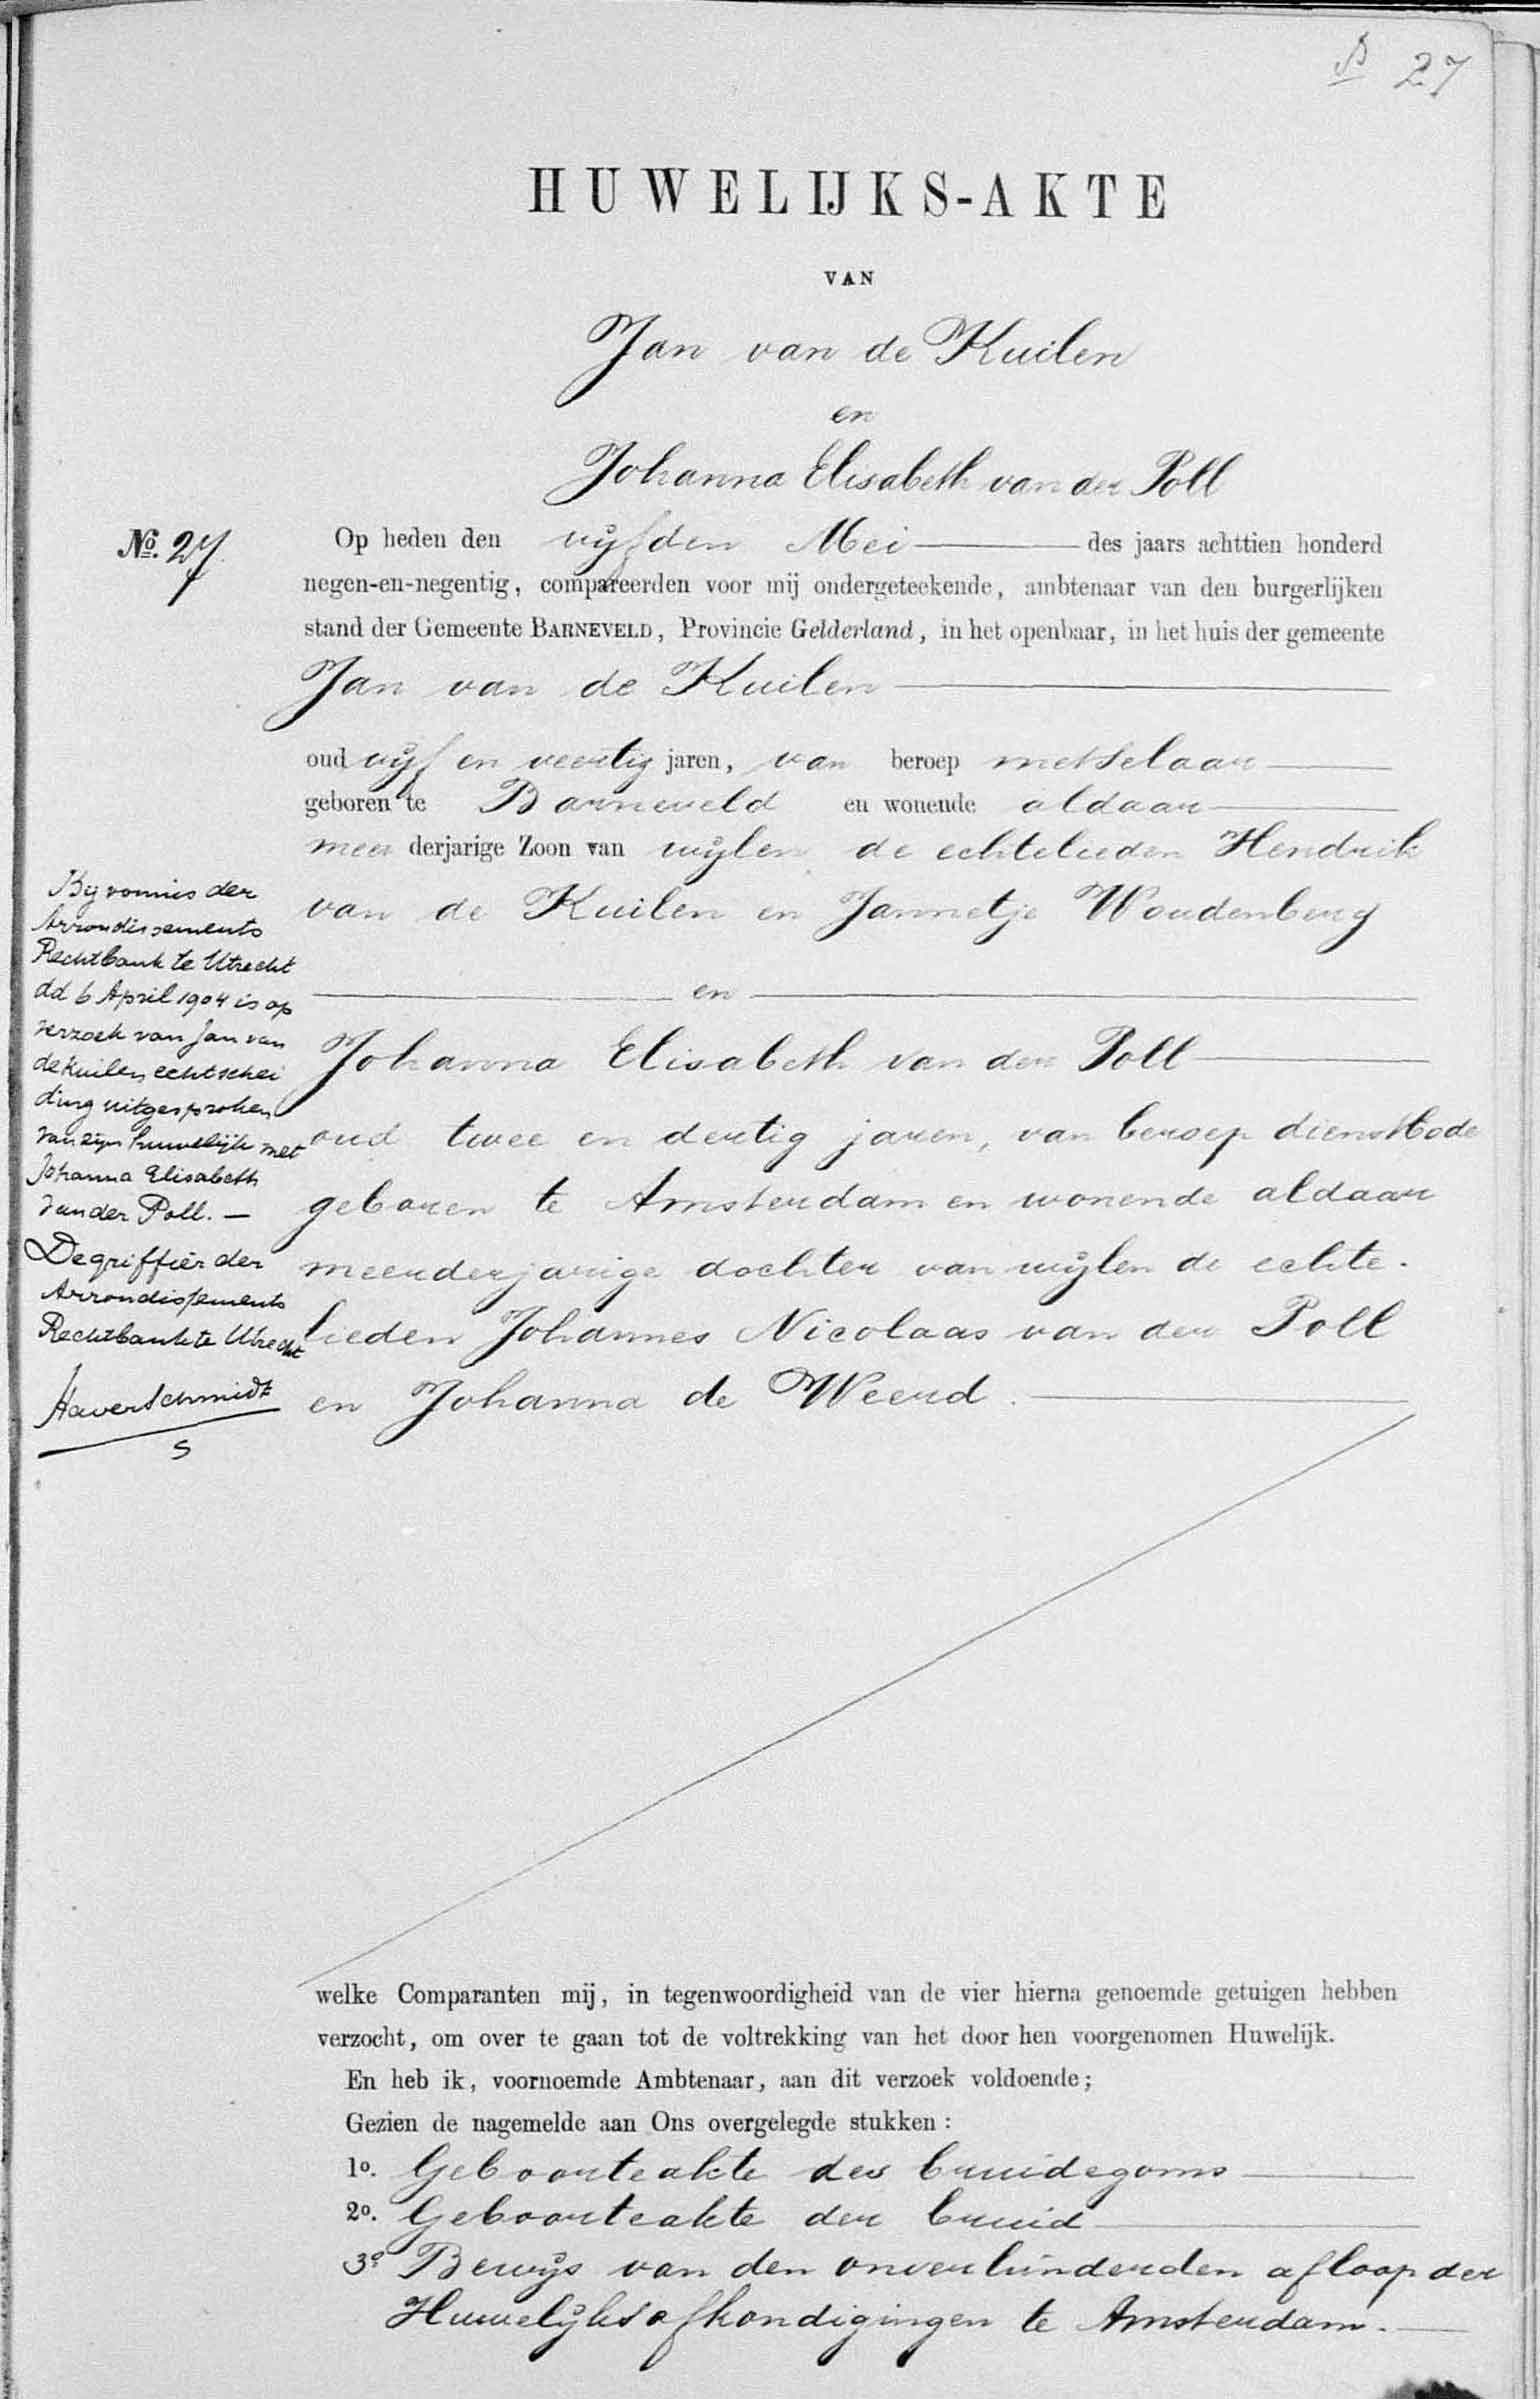 B 27
HUWELIJKS-AKTE
VAN
Jan van de Kuilen
en
Johanna Elisabeth van der Poll
No. 27.
Op heden den vijfden Mei des jaars achttien honderd
negen-en-negentig, compareerden voor mij ondergeteekende, ambtenaar van den burgerlijken
stand der Gemeente BARNEVELD, Provincie Gelderland, in het openbaar, in het huis der gemeente
Jan van de Kuilen
oud vijf en veertig jaren, van beroep metselaar
geboren te Barneveld en wonende aldaar
meer derjarige Zoon van wijlen de echtelieden Hendrik
van de Kuilen en Jannetje Woudenberg
en
Johanna Elisabeth van der Poll
oud twee en dertig jaren, van beroep dienstbode
geboren te Amsterdam en wonende aldaar
meerderjarige dochter van wijlen de echte-
lieden Johannes Nicolaas van der Poll
en Johanna de Weerd.
By vonnis der
Arrondissements
Rechtbank te Utrecht
dd 6 April 1904 is op
verzoek van Jan van
de Kuilen echtschei
ding uitgesproken
van zijn huwelijk met
Johanna Elisabeth
van der Poll. —
De griffier der
Arrondissements
Rechtbank te Utrecht
Haverschmidt
S
welke Comparanten mij, in tegenwoordigheid van de vier hierna genoemde getuigen hebben
verzocht, om over te gaan tot de voltrekking van het door hen voorgenomen Huwelijk.
En heb ik, voornoemde Ambtenaar, aan dit verzoek voldoende;
Gezien de nagemelde aan Ons overgelegde stukken:
1o. Geboorteakte des bruidegoms
2o. Geboorteakte der bruid
3o Bewijs van den onverhinderden afloop der
Huwelijksafkondigingen te Amsterdam.